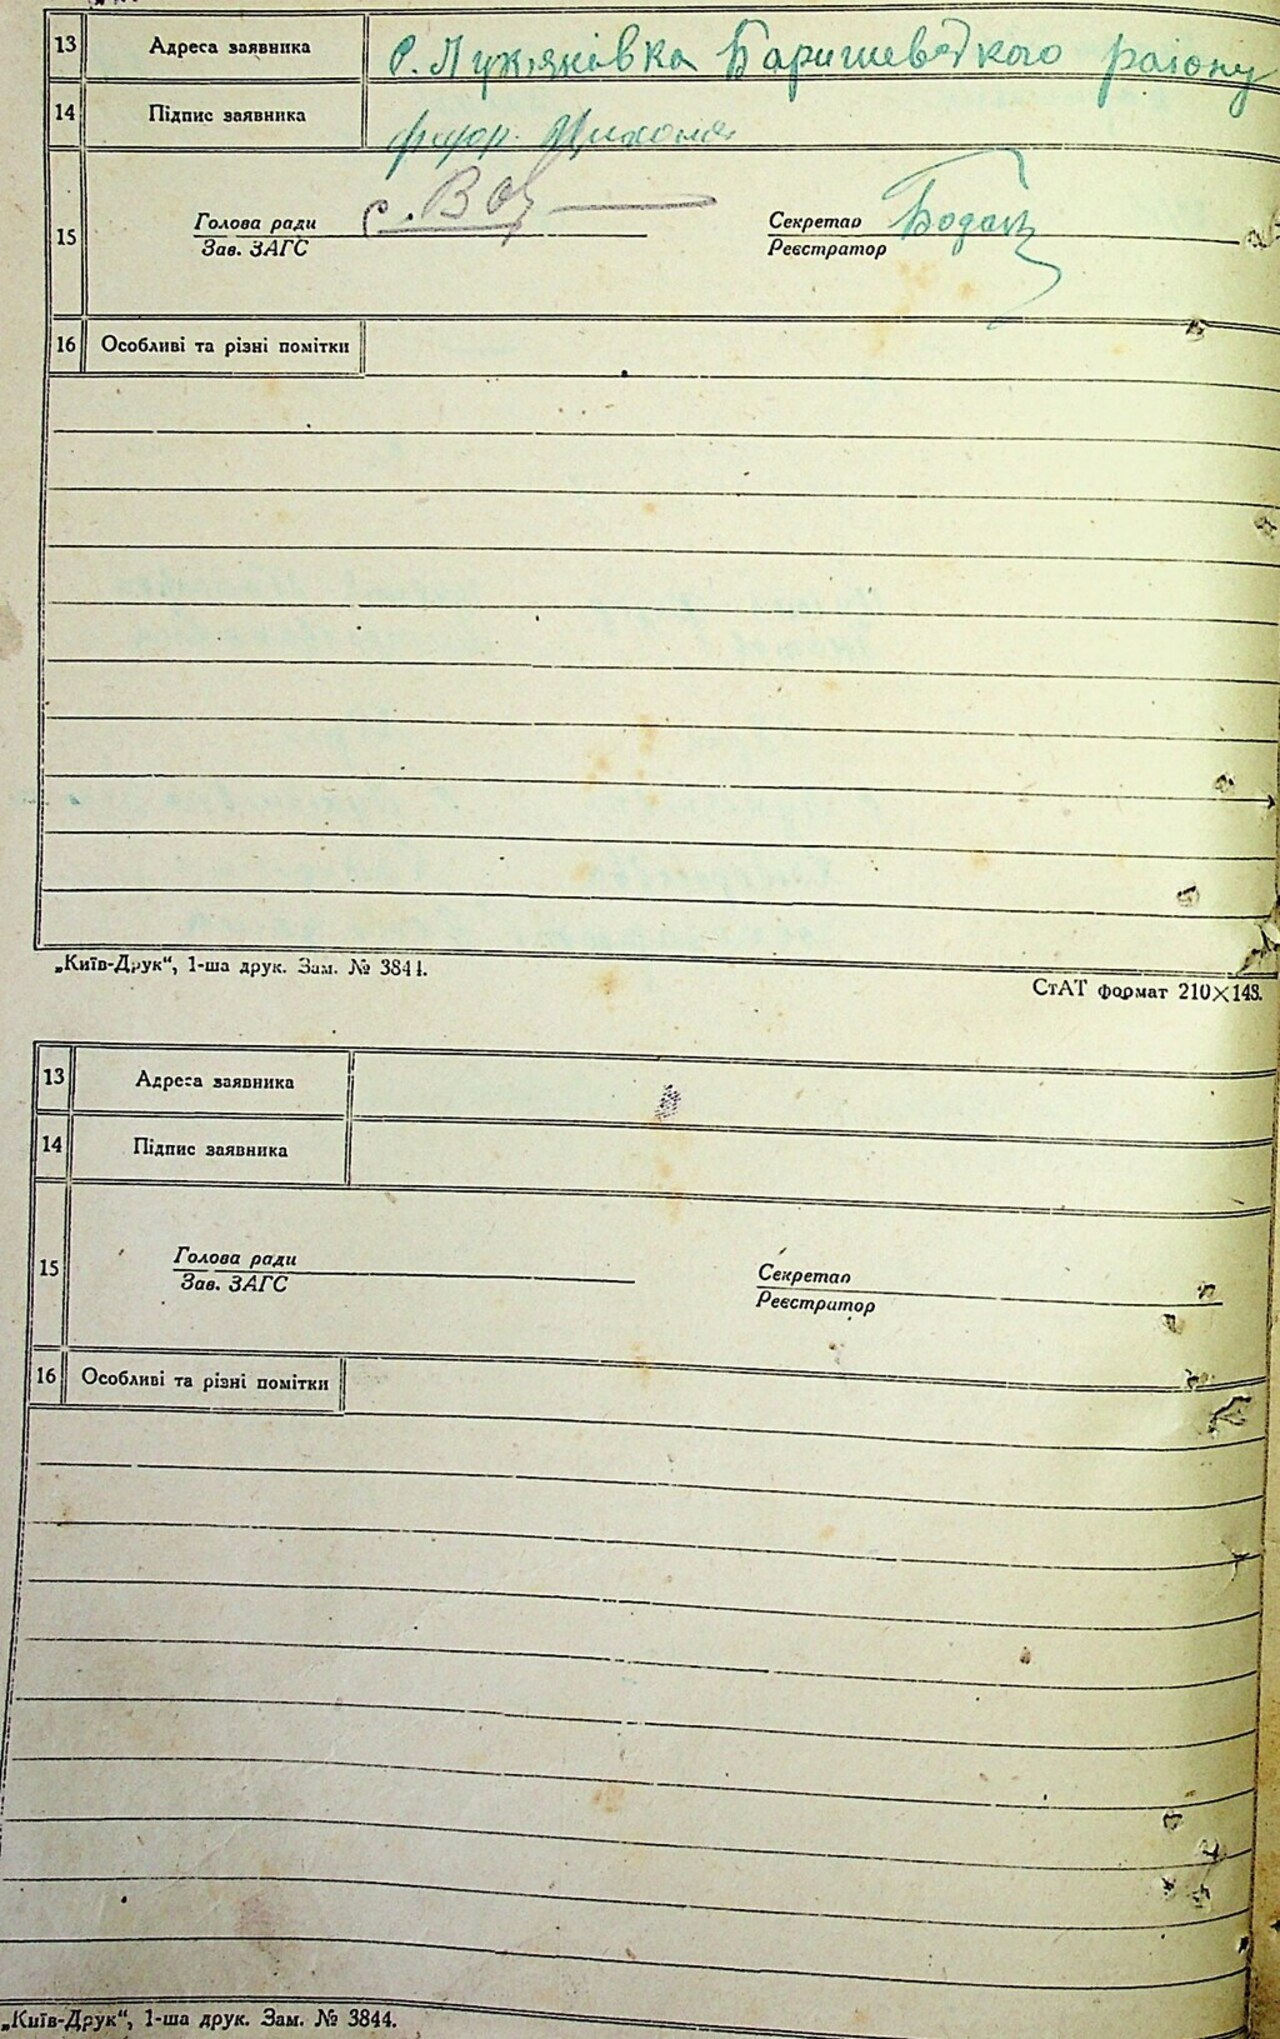 13 Адреса заявника с. Лукяновка Баришевського району
14 Підпис заявника
15 Голова ради Секретар
Зав. ЗАГС Реєстратор
16 Особливі та різні помітки
„Київ-Друк“, 1-ша друк. Зам. № 3844.
СтАТ формат 210×148.
13 Адреса заявника
14 Підпис заявника
15 Голова ради Секретар
Зав. ЗАГС Реєстратор
16 Особливі та різні помітки
„Київ-Друк“, 1-ша друк. Зам. № 3844.